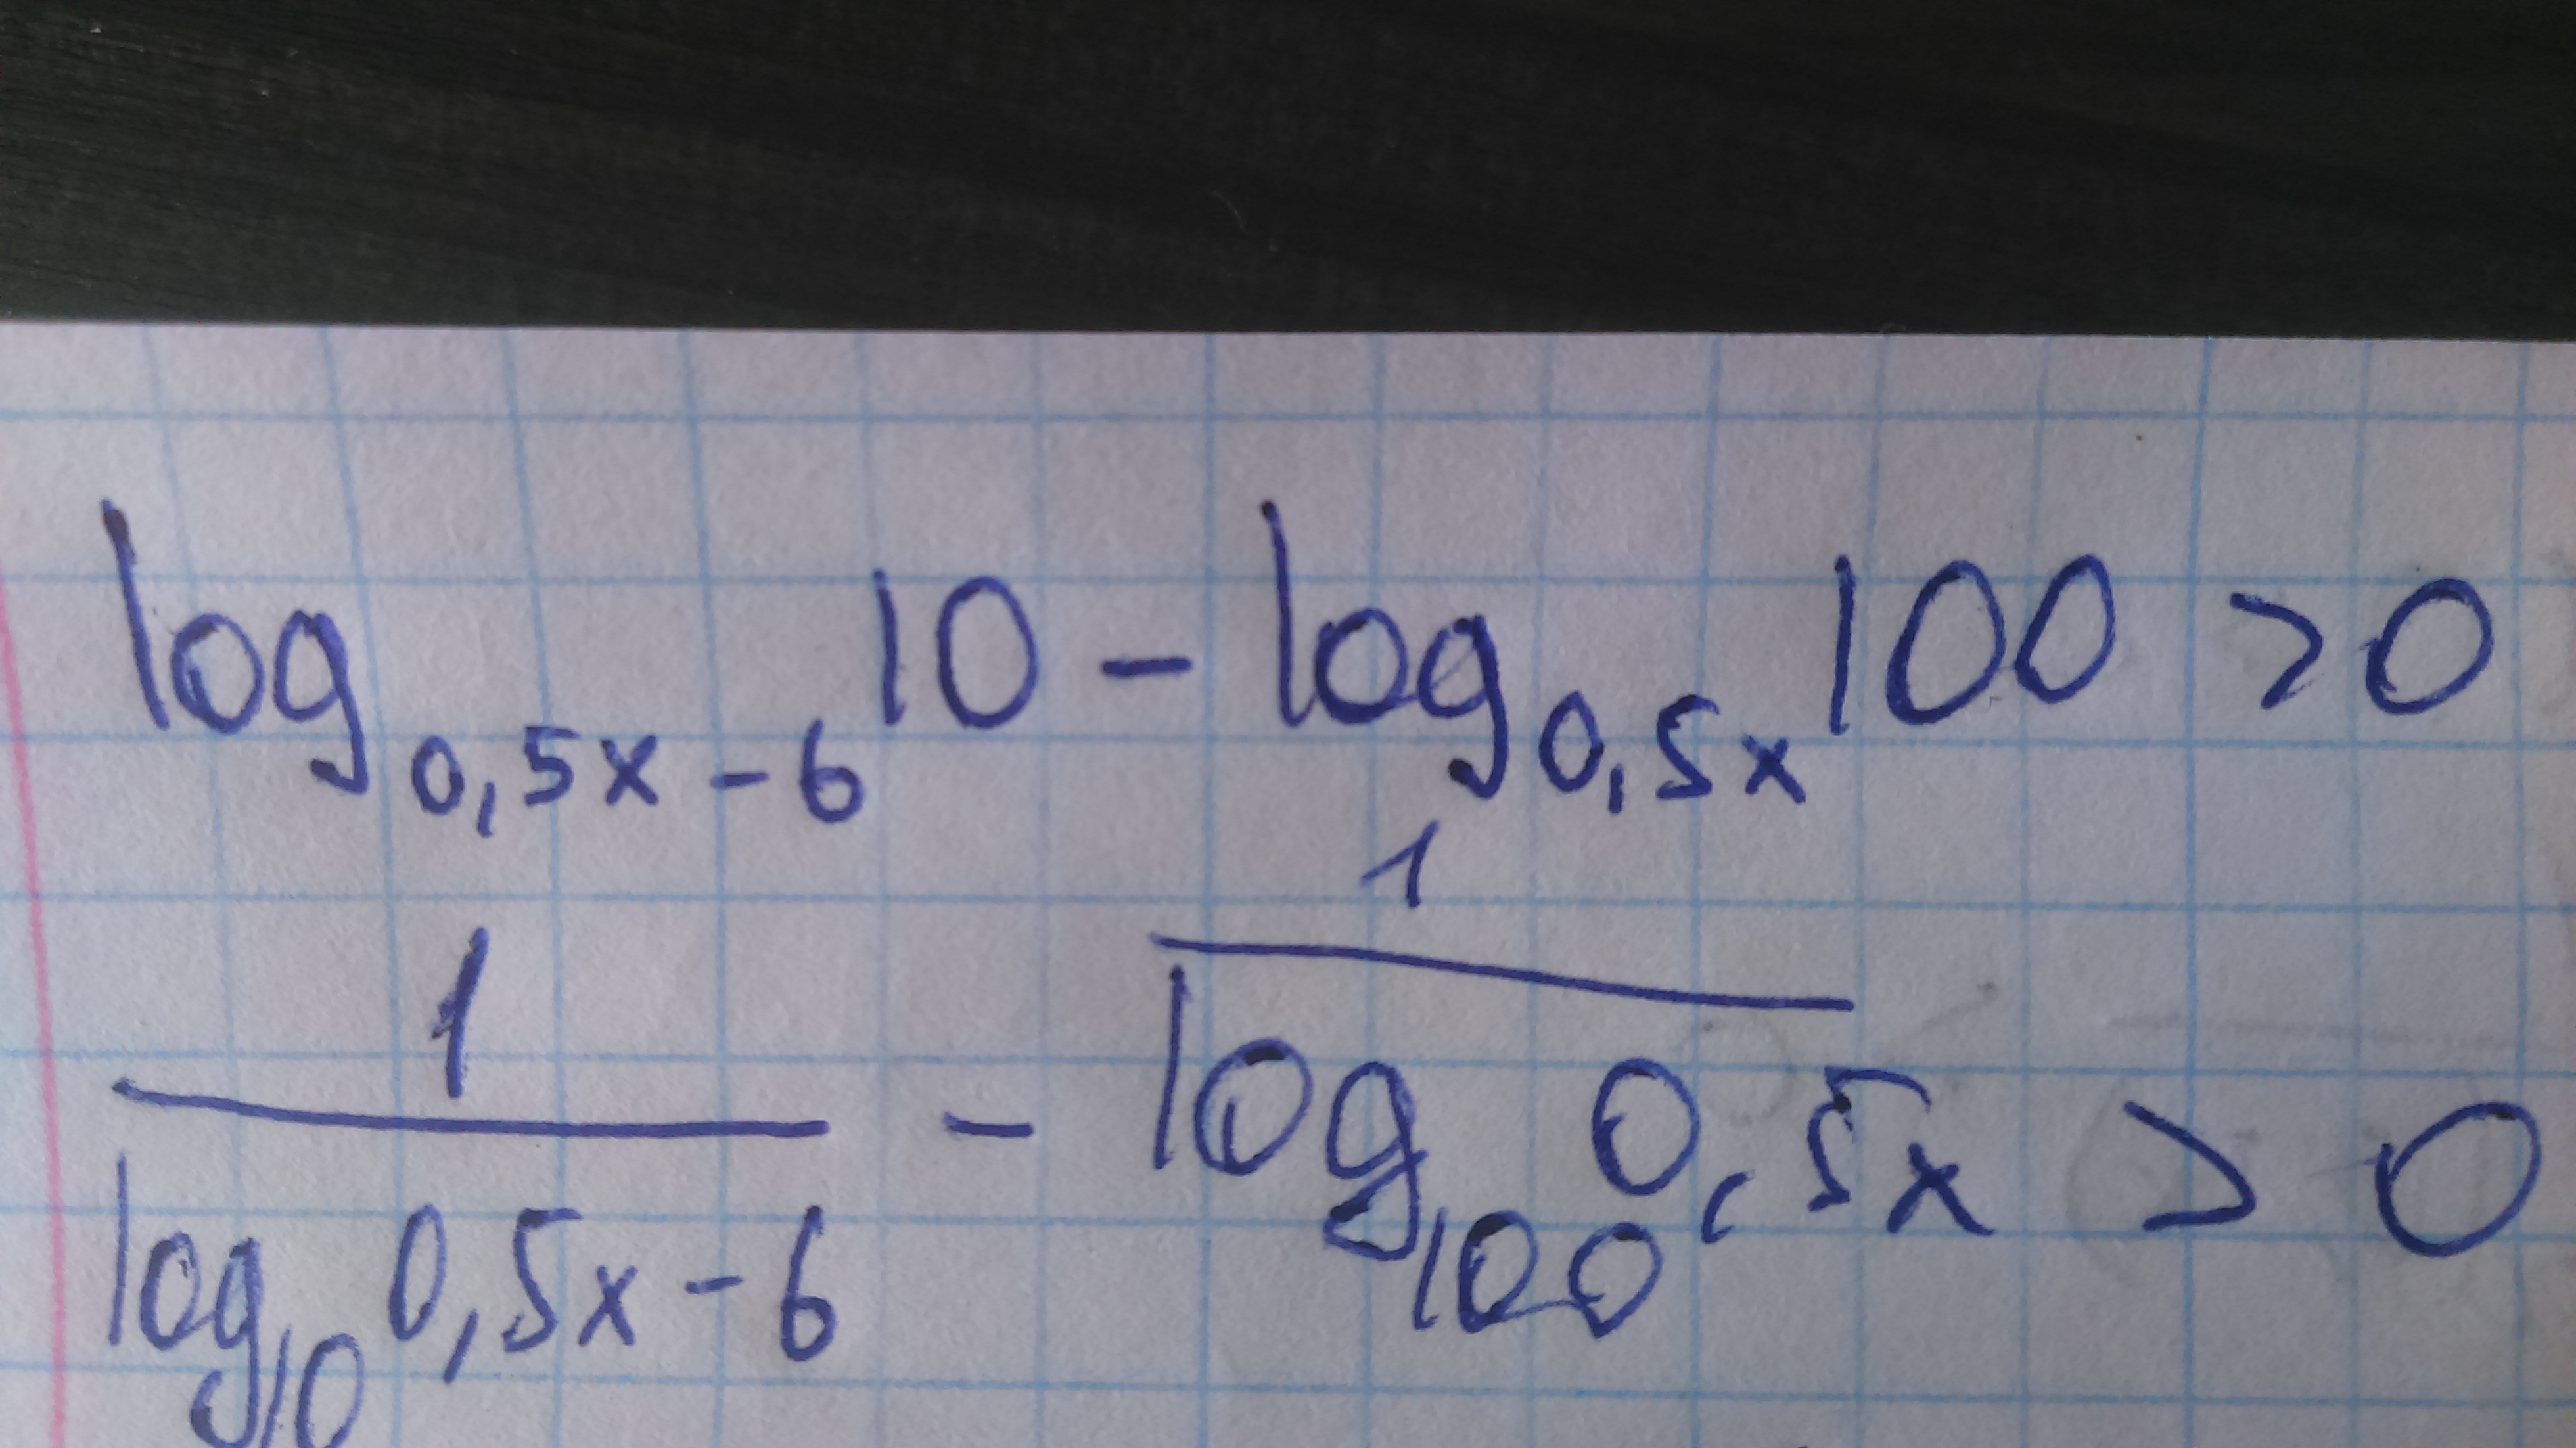 log_{0,5x-6} 10 - log_{0,5x} 100 > 0
\frac{1}{log_{10} 0,5x-6} - \frac{1}{log_{100} 0,5x} > 0